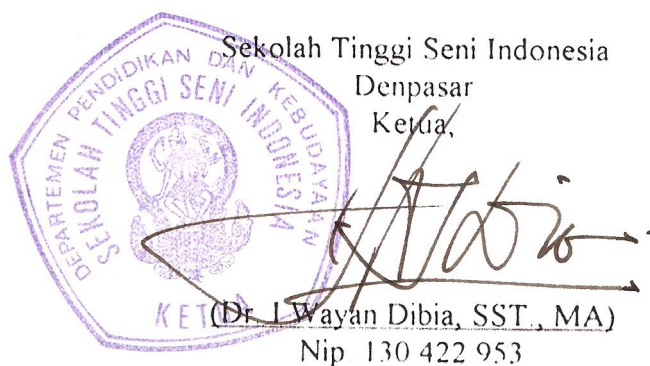 Sekolah Tinggi Seni Indonesia
Denpasar
Ketua,
DEPARTEMEN PENDIDIKAN DAN KEBUDAYAAN
SEKOLAH TINGGI SENI INDONESIA
KETUA
(Dr. I Wayan Dibia, SST., MA)
Nip 130 422 953